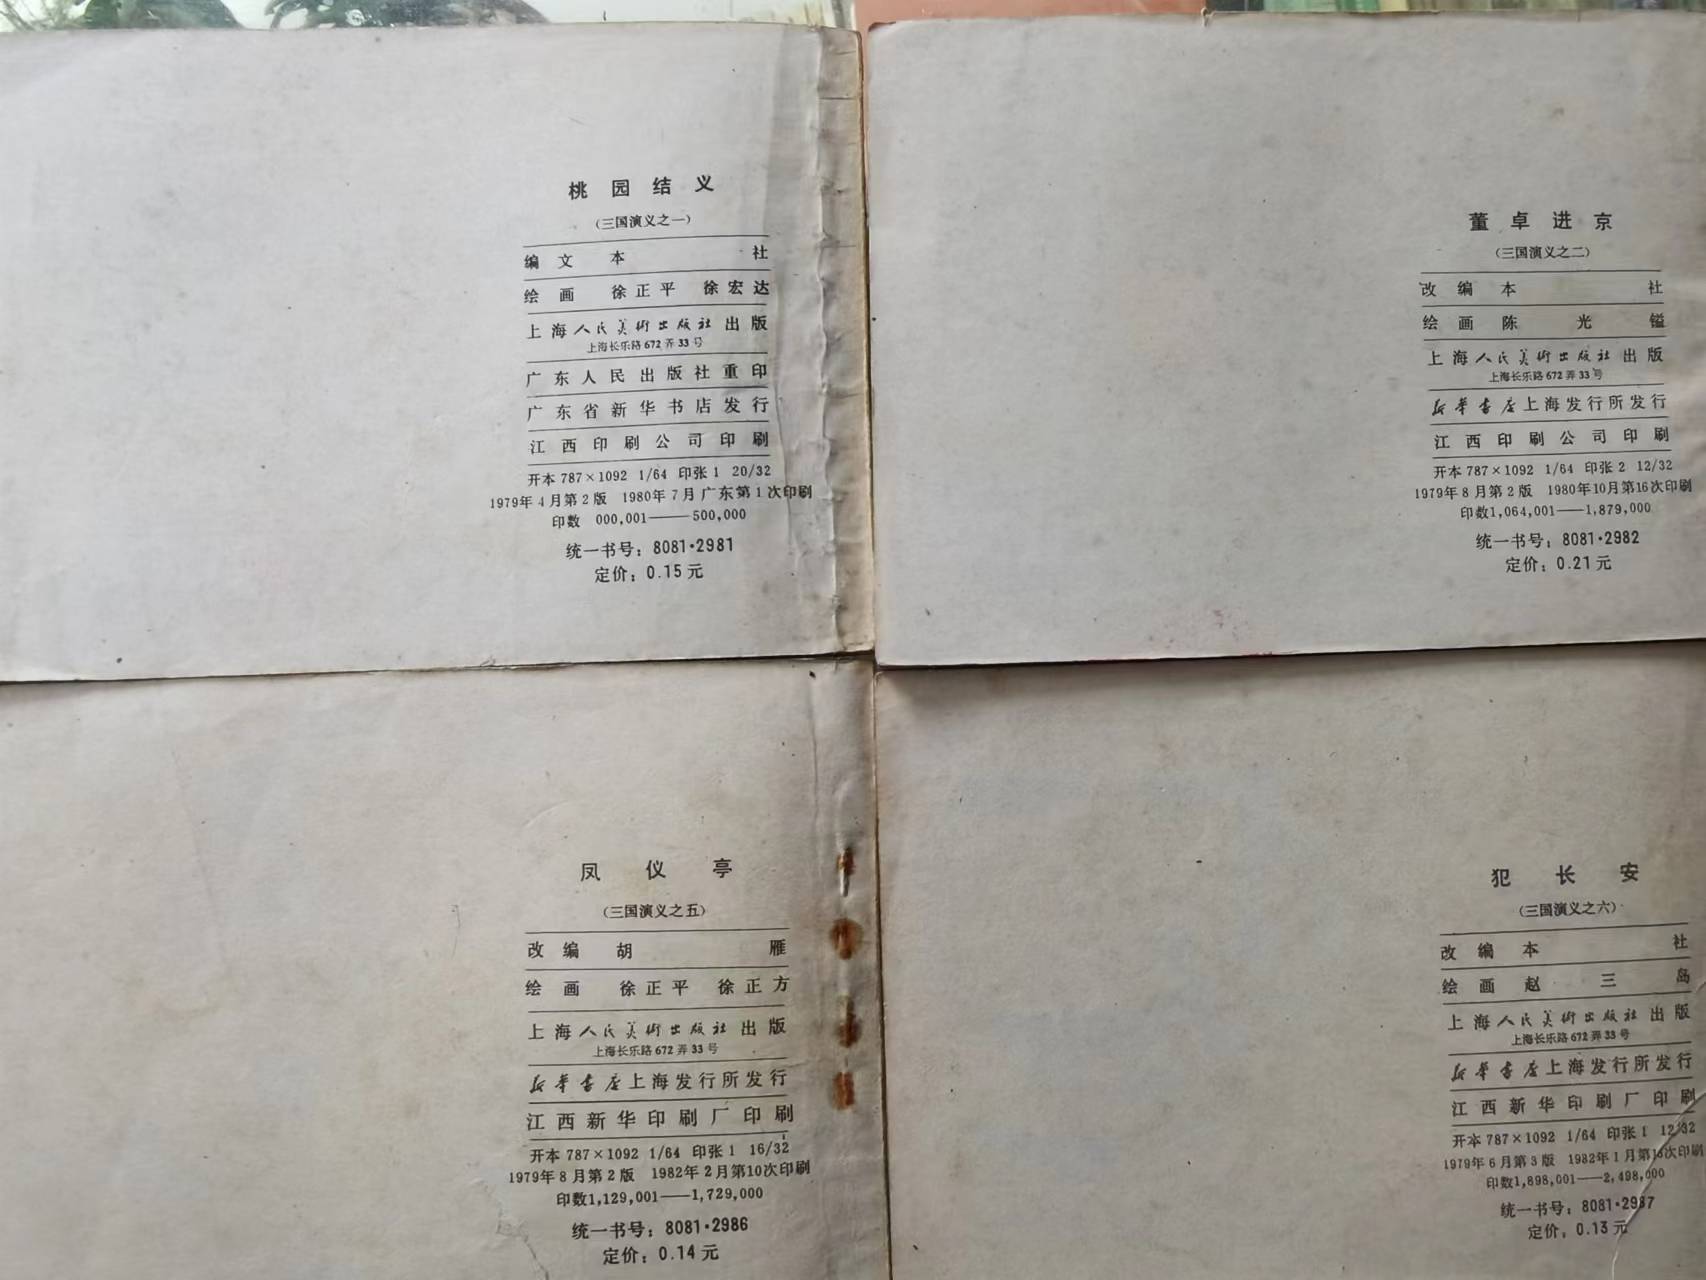 桃园结义
(三国演义之一)
编文 本社
绘画 徐正平 徐宏达
上海人民美術出版社出版
上海长乐路672弄33号
广东人民出版社重印
广东省新华书店发行
江西印刷公司印刷
开本787×1092 1/64 印张1 20/32
1979年4月第2版 1980年7月广东第1次印刷
印数 000,001——500,000
统一书号：8081·2981
定价：0.15元
董卓进京
(三国演义之二)
改编 本社
绘画 陈光镒
上海人民美術出版社出版
上海长乐路672弄33号
新华书店上海发行所发行
江西印刷公司印刷
开本787×1092 1/64 印张2 12/32
1979年8月第2版 1980年10月第16次印刷
印数1,064,001——1,879,000
统一书号：8081·2982
定价：0.21元
凤仪亭
(三国演义之五)
改编 胡雁
绘画 徐正平 徐正方
上海人民美術出版社出版
上海长乐路672弄33号
新华书店上海发行所发行
江西新华印刷厂印刷
开本787×1092 1/64 印张1 16/32
1979年8月第2版 1982年2月第10次印刷
印数1,129,001——1,729,000
统一书号：8081·2986
定价：0.14元
犯长安
(三国演义之六)
改编 本社
绘画 赵三岛
上海人民美術出版社出版
上海长乐路672弄33号
新华书店上海发行所发行
江西新华印刷厂印刷
开本787×1092 1/64 印张1 12/32
1979年6月第3版 1982年1月第 次印刷
印数1,898,001——2,498,000
统一书号：8081·2987
定价：0.13元